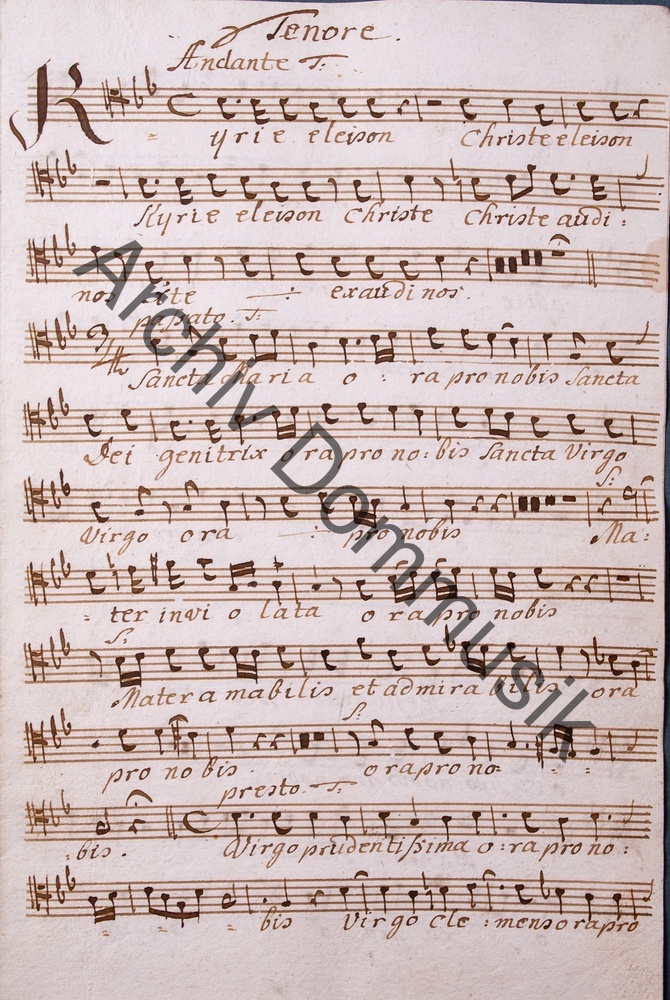 Tenore.
Andante T:
Kyrie eleison Christe eleison
Kyrie eleison Christe Christe audi:
nos
exaudi nos.
passato. T:
Sancta Maria o: ra pro nobis Sancta
Dei genitrix ora pro no: bis Sancta Virgo
S:
Virgo ora pro nobis Ma:
ter invi o lata ora pro nobis
S:
Mater amabilis et admirabilis ora
S:
pro nobis. ora pro no
presto. T:
bis. Virgo prudentissima o: ra pro no:
bis Virgo cle: mens ora pro
Archiv Dommusik